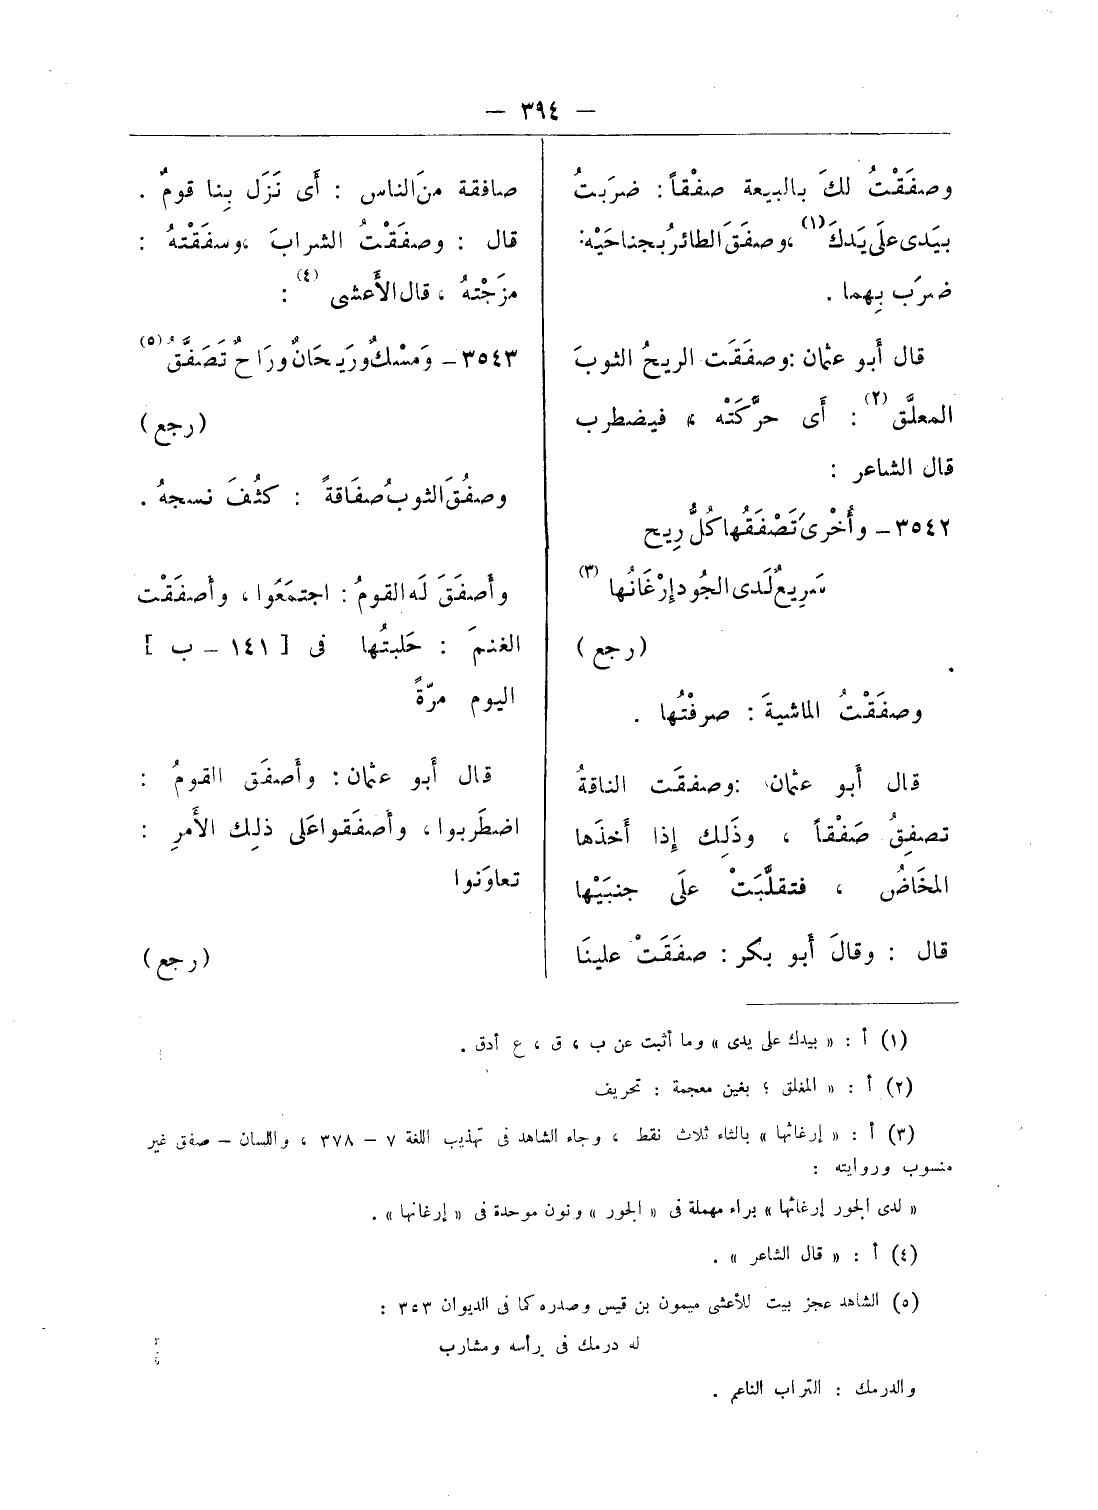 — ٣٩٤ —
وصفَقْتُ لكَ بالبيعة صفْقاً : ضرَبتُ
بيَدى علَى يَدكَ (١) ، وصفَقَ الطائرُ بجناحَيْه :
ضرَب بِهما .
قال أَبو عثمان : وصفَقَت الريحُ الثوبَ
المعلَّق (٢) : أَى حرَّكَتْه ، فيضطرب
قال الشاعر :
٣٥٤٢ – وأُخْرىَ تَصْفَقُها كُلُّ رِيح
سَرِيعٌ لَدى الجُود إرْغَانُها (٣)
( رجع )
وصفَقْتُ الماشيةَ : صرفْتُها .
قال أَبو عثمان : وصفقَت الناقةُ
تصفِقُ صَفْقاً ، وذَلِك إِذا أَخذَها
المخَاضُ ، فتقلَّبَتْ علَى جنبَيْها
قال : وقالَ أَبو بكر : صفَقَتْ علينَا
صافقة منَ الناس : أَى نَزَل بِنا قومٌ .
قال : وصفَقْتُ الشرابَ ، وسفَقْتهُ :
مزَجْتهُ ، قال الأَعشى (٤) :
٣٥٤٣ – وَمسْكٌ وريَحانٌ ورَاحٌ تَصَفَّقُ (٥)
( رجع )
وصفُقَ الثوبُ صفَاقةً : كثُفَ نسجهُ .
وأَصفَقَ لَه القومُ : اجتمَعُوا ، وأَصفَقْت
الغنمَ : حَلبتُها فى [ ١٤١ – ب ]
اليوم مرّةً
قال أَبو عثمان : وأَصفَق القومُ :
اضطَربوا ، وأَصفَقوا علَى ذلِك الأَمرِ :
تعاوَنوا
( رجع )
(١) أ : « بيدك على يدى » وما أثبت عن ب ، ق ، ع أدق .
(٢) أ : « المغلق ؛ بغين معجمة : تحريف
(٣) أ : « إرغاثها » بالثاء ثلاث نقط ، وجاء الشاهد فى تهذيب اللغة ٧ – ٣٧٨ ، واللسان – صفق غير
منسوب وروايته :
« لدى الجور إرغاثها » براء مهملة فى « الجور » ونون موحدة فى « إرغانها » .
(٤) أ : « قال الشاعر » .
(٥) الشاهد عجز بيت للأعشى ميمون بن قيس وصدره كما فى الديوان ٣٥٣ :
له درمك فى رأسه ومشارب
والدرمك : التراب الناعم .